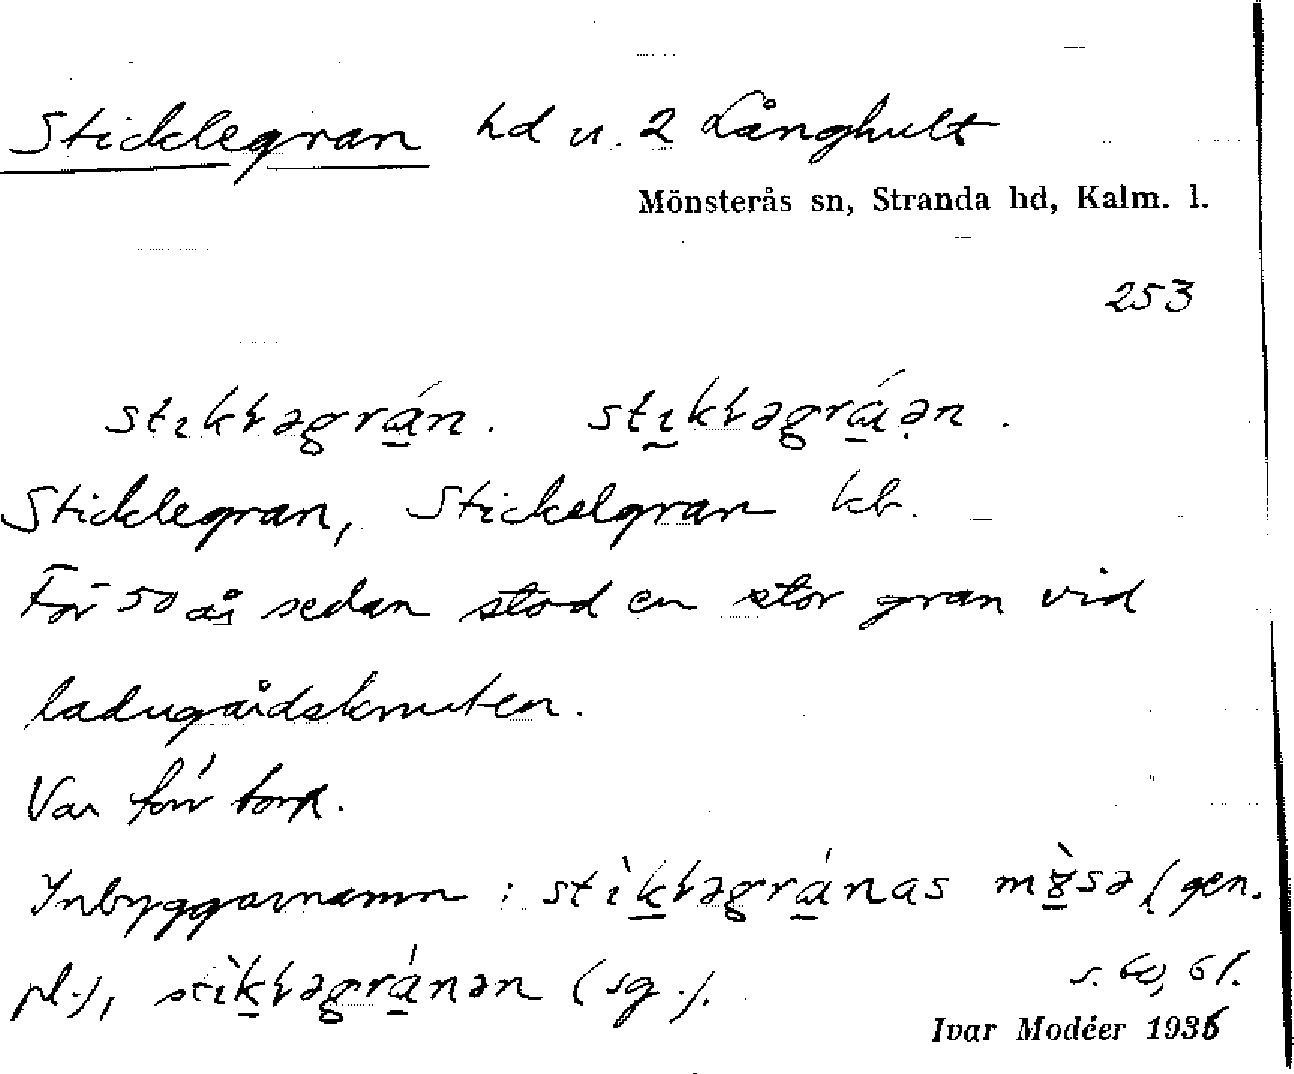 Sticklegran hd u. 2 Långhult
Mönsterås sn, Stranda hd, Kalm. l.
253
stıkʟəgrán. stıkʟəgráən.
Sticklegran, Stickelgran kb.
För 50 år sedan stod en stor gran vid
ladugårdsknuten.
Var förr torp.
Inbyggarnamn: stìkʟəgránas m sə (gen.
pl.), stìkʟəgránən (sg.).
s. 60, 61.
Ivar Modéer 1936